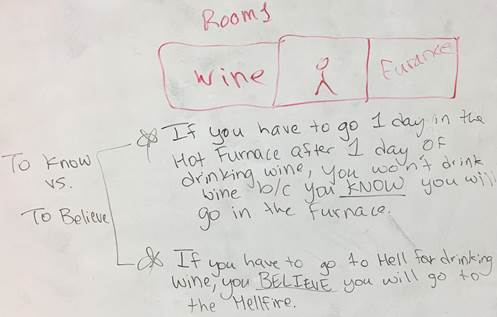 Rooms
wine
Furance
If you have to go 1 day in the
Hot Furnace after 1 day of
drinking wine, you won't drink
wine b/c you KNOW you will
go in the Furnace.
To Know
vs.
To Believe
If you have to go to Hell for drinking
wine, you BELIEVE you will go to
the Hellfire.